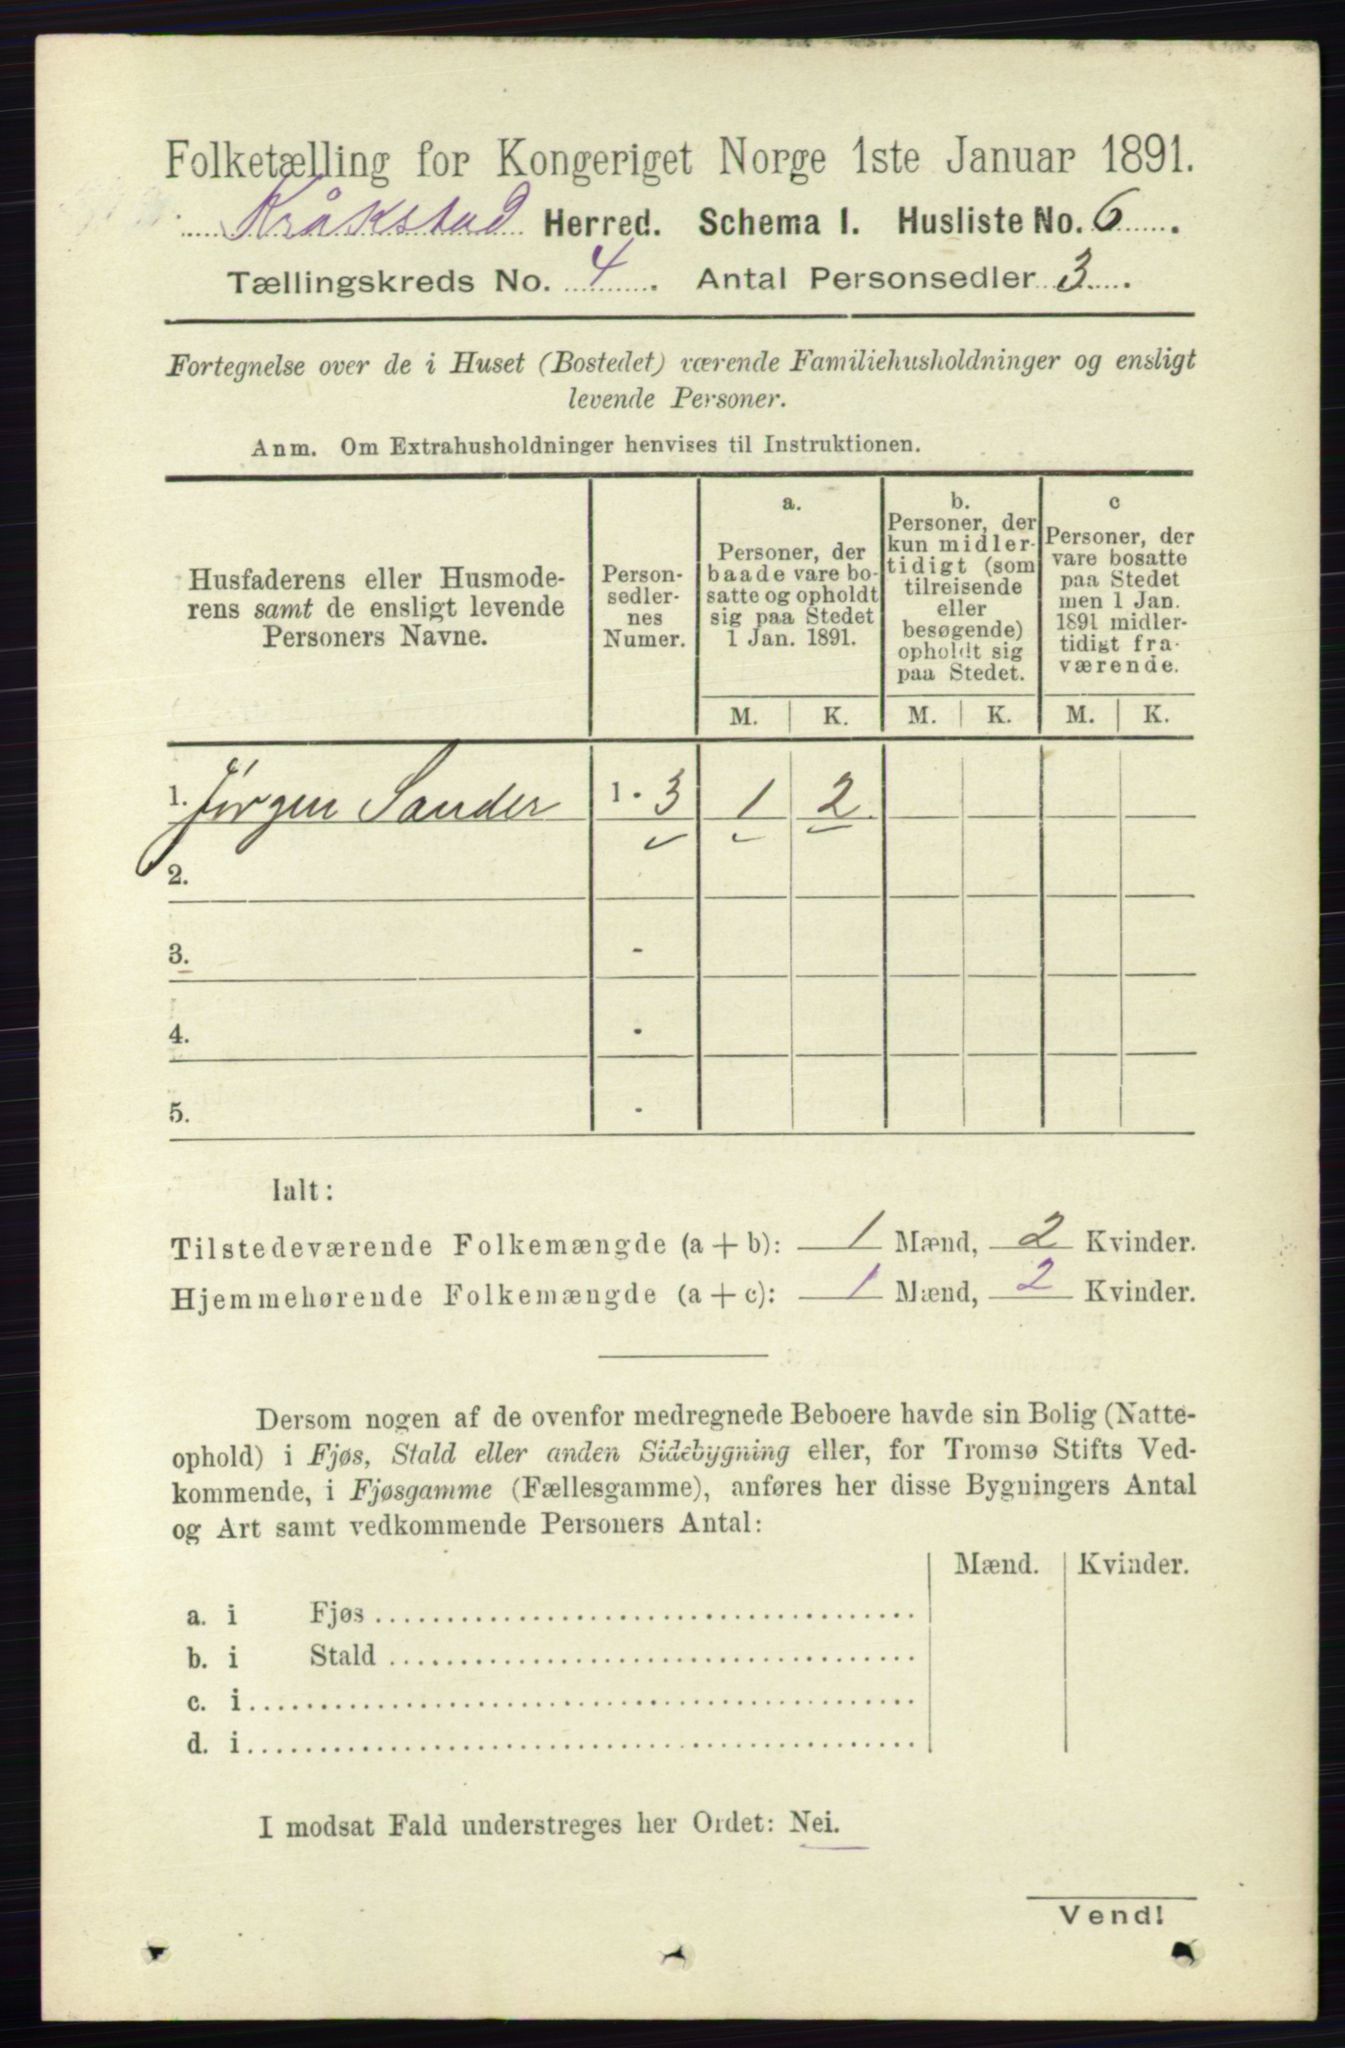 Folketælling for Kongeriget Norge 1ste Januar 1891.
Kråkstad Herred. Schema I. Husliste No. 6.
Tællingskreds No. 4. Antal Personsedler 3.
Fortegnelse over de i Huset (Bostedet) værende Familiehusholdninger og ensligt
levende Personer.
Anm. Om Extrahusholdninger henvises til Instruktionen.
Husfaderens eller Husmode-
rens samt de ensligt levende
Personers Navne.
Person-
sedler-
nes
Numer.
a.
Personer, der
baade vare bo-
satte og opholdt
sig paa Stedet
1 Jan. 1891.
b.
Personer, der
kun midler-
tidigt (som
tilreisende
eller
besøgende)
opholdt sig
paa Stedet.
c
Personer, der
vare bosatte
paa Stedet
men 1 Jan.
1891 midler-
tidigt fra-
værende.
M. K. M. K. M. K.
1. Jørgen Sander 1 - 3 1 2
2.
3. -
4. -
5. -
Ialt:
Tilstedeværende Folkemængde (a + b): 1 Mænd, 2 Kvinder.
Hjemmehørende Folkemængde (a + c): 1 Mænd, 2 Kvinder.
Dersom nogen af de ovenfor medregnede Beboere havde sin Bolig (Natte-
ophold) i Fjøs, Stald eller anden Sidebygning eller, for Tromsø Stifts Ved-
kommende, i Fjøsgamme (Fællesgamme), anføres her disse Bygningers Antal
og Art samt vedkommende Personers Antal:
Mænd. Kvinder.
a. i Fjøs
b. i Stald
c. i
d. i
I modsat Fald understreges her Ordet: Nei.
Vend!